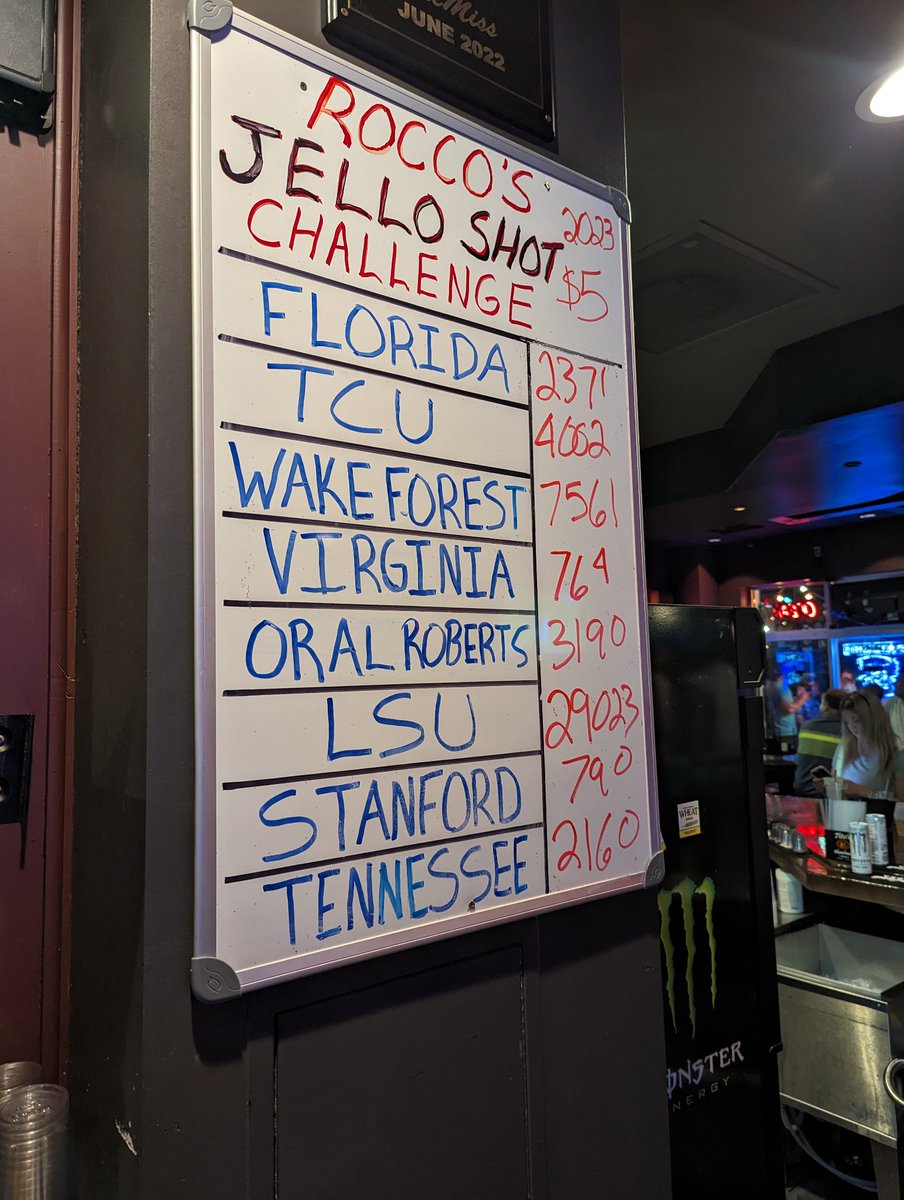 Miss
JUNE 2022
ROCCO'S
JELLO SHOT 2023
CHALLENGE $5
FLORIDA 2371
TCU 4062
WAKE FOREST 7561
VIRGINIA 764
ORAL ROBERTS 3190
LSU 29023
STANFORD 790
TENNESSEE 2160
WHEAT
MONSTER
ENERGY